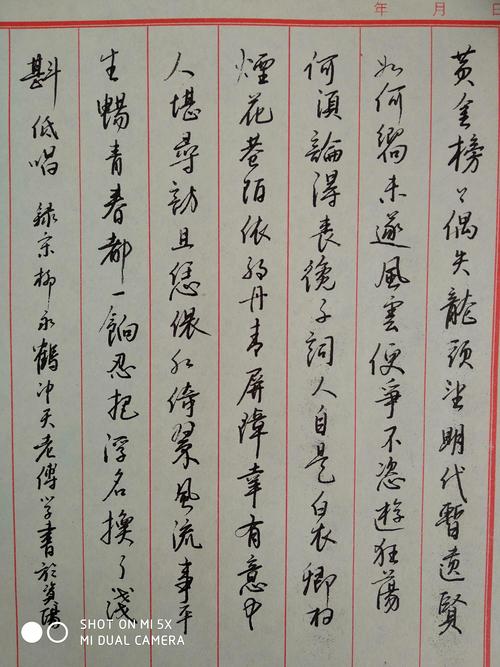 年 月 日
黄金榜上偶失龍頭望明代暫遺賢
如何嚮未遂風雲便爭不恣遊狂蕩
何須論得喪纔子詞人自是白衣卿相
煙花巷陌依約丹青屏障幸有意中
人堪尋訪且恁偎紅倚翠風流事平
生暢青春都一餉忍把浮名換了淺
斟低唱 録宋柳永鶴冲天老傅学書於資陽
SHOT ON MI 5X
MI DUAL CAMERA